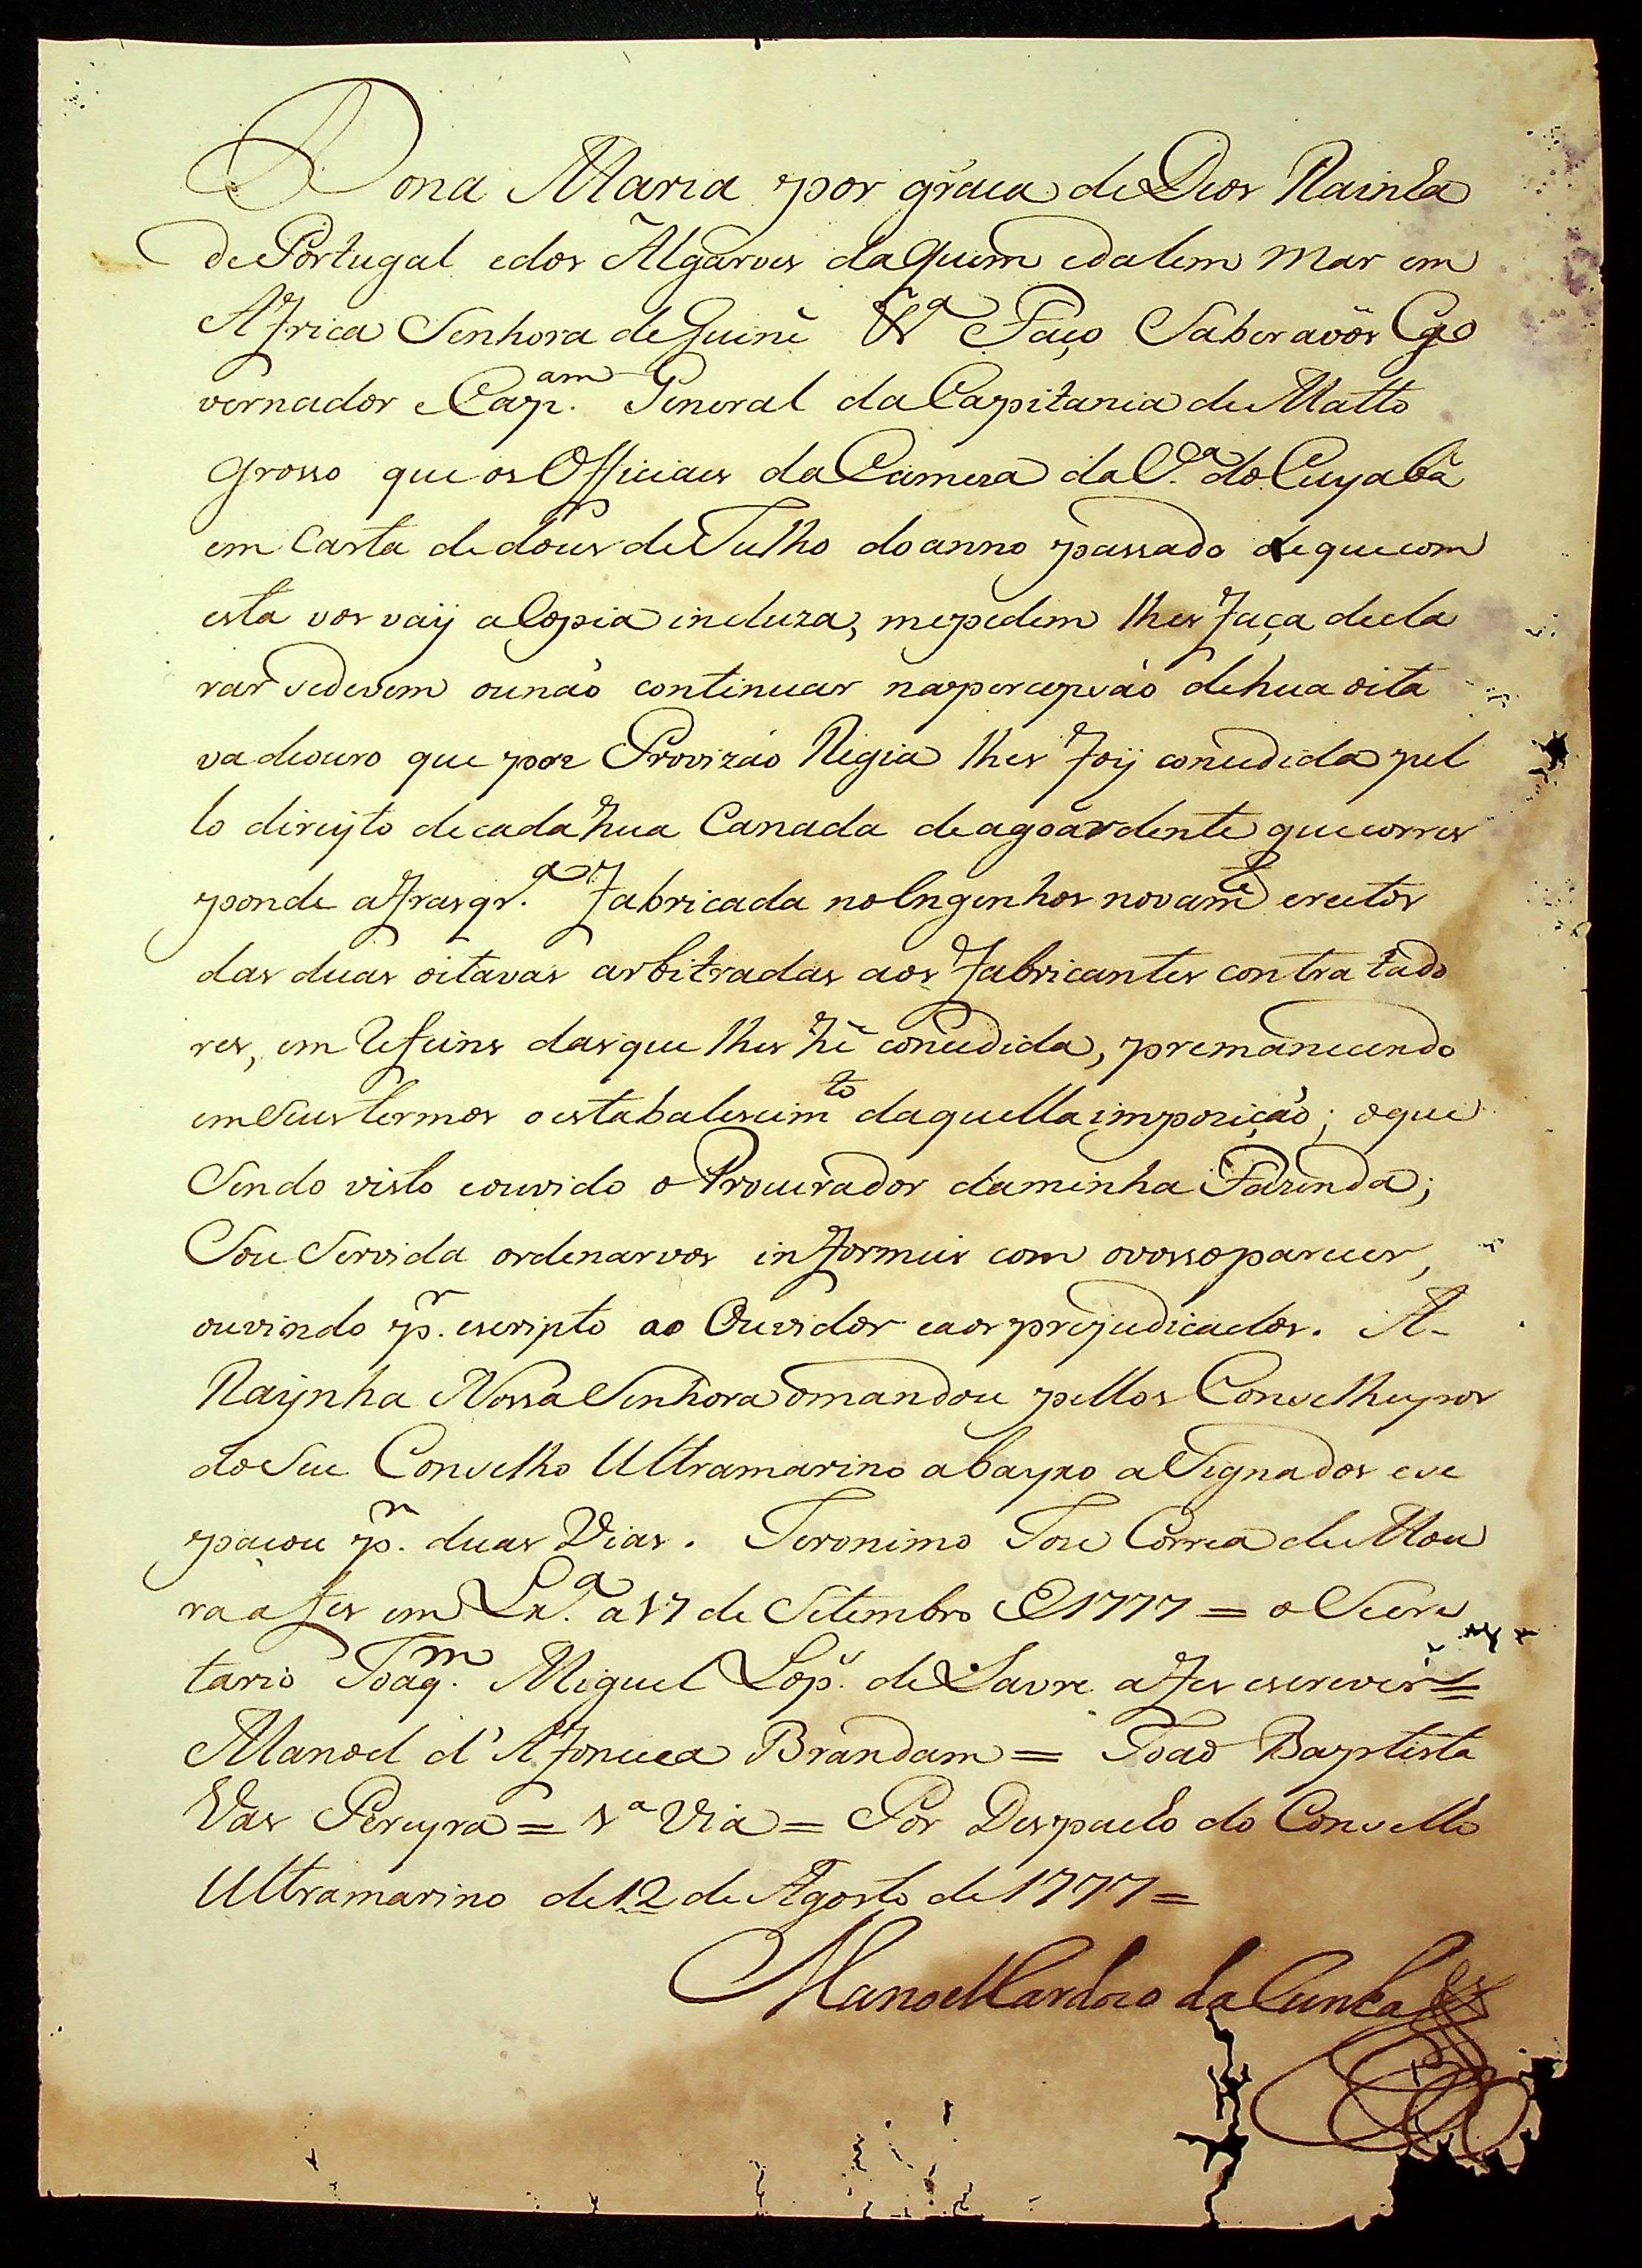 Dona Maria por graça de Deos Rainha
de Portugal e dos Algarves daquem e dalem Mar em
Africa Senhora de Guiné &ª Faço Saber a vós Go
vernador e Cap.am General da Capitania de Matto
grosso que os Officiaes da Camera da V.ª do Cuyabá
em Carta de dous de Julho do anno passado de que com
esta vos vaÿ a Copia incluza, me pedem lhes faça decla
rar se devem ou não continuar na percepsão de hua oita
va de ouro que por Provizão Regia lhes foÿ concedida pel
lo direÿto de cada hua Canada de agoardente que corres
ponde a frasqr.ª fabricada no Engenhos novamte erectos
das duas oitavas arbitradas aos fabricantes contratado
res, em das que lhes hé concedida, premanecendo
em Seus termos o estabalescimto daquella impozição; o que
Sendo visto e ouvido o Procurador da minha Fazenda;
Sou Servida ordenarvos informeis com o vosso parecer,
ouvindo p.r escripto ao Ouvidor e aos prejudicados. A
Raÿnha Nossa Senhora o mandou pellos Conselheyros
do Seu Conselho Ultramarino abayxo aSignados e se
paçou p.r duas Vias. Jeronimo Joze Correa de Mou
ra a fes em Lx.ª a 17 de Setembro de 1777 = o Secre
tario Joaq.m Miguel Lop.s de Lavre a fes escrever =
Manoel d'Afonceca Brandam = João Baptista
Vas Pereyra = 1ª Via = Por Despacho do Conselho
Ultramarino de 12 de Agosto de 1777 =
Manoel Cardozo da Cunha